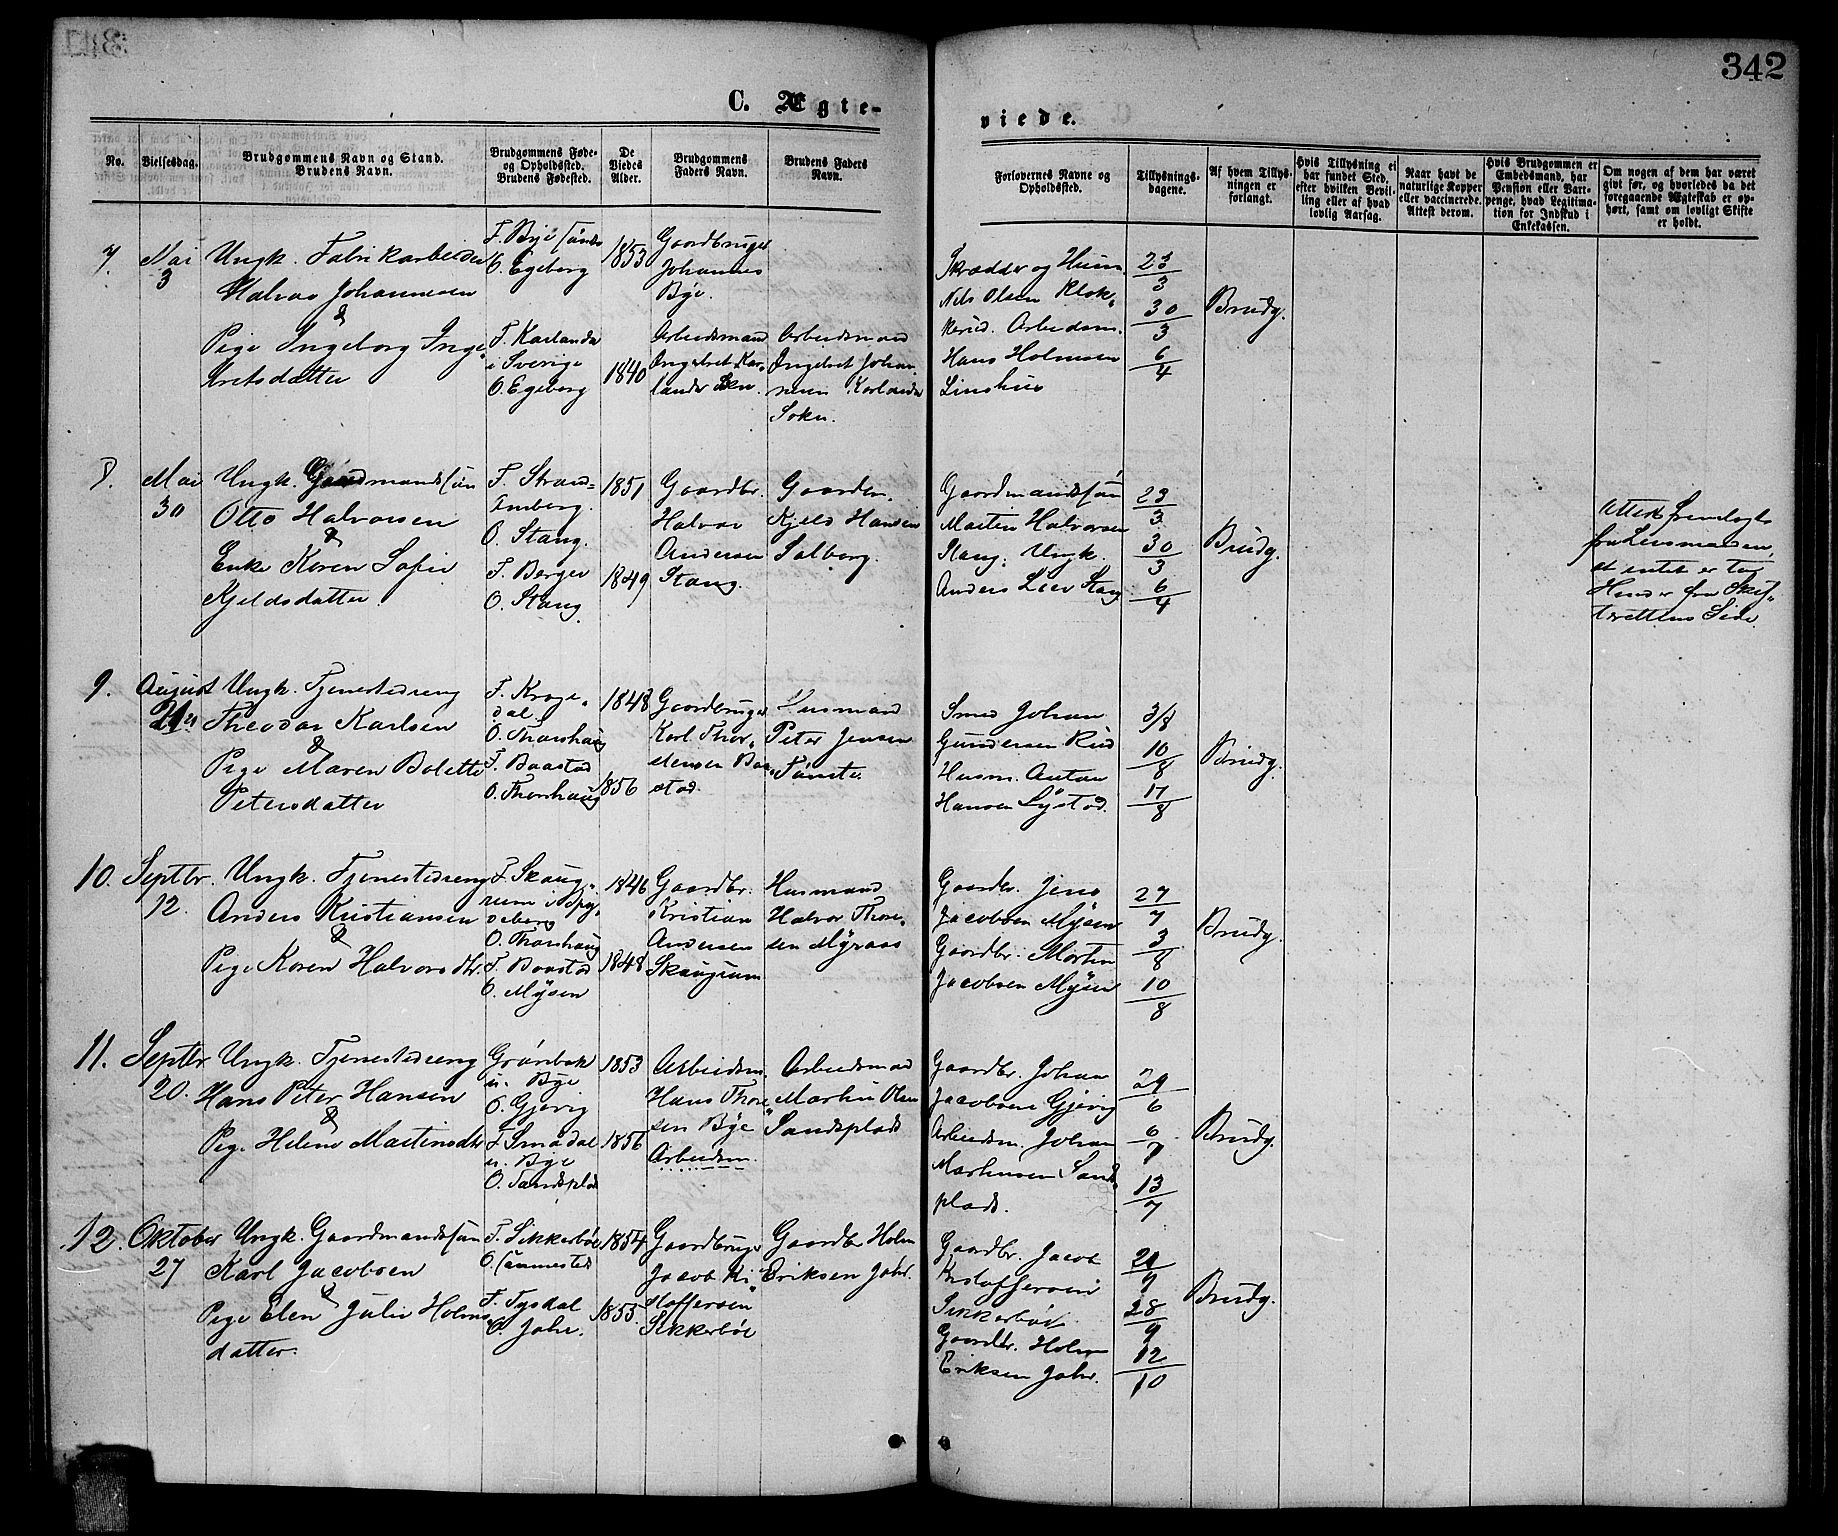 342
C. Ægte-
viede.
No.
Vielsesdag.
Brudgommens Navn og Stand.
Brudens Navn.
Brudgommens Føde-
og Opholdssted.
Brudens Fødested.
De
Viedes
Alder.
Brudgommens
Faders Navn.
Brudens Faders
Navn.
Forlovernes Navne og
Opholdssted.
Tillysnings-
dagene.
Af hvem Tillys-
ningen er
forlangt.
Hvis Tillysning ei
har fundet Sted,
efter hvilken Bevil-
ling eller af hvad
lovlig Aarsag.
Naar havt de
naturlige Kopper
eller vaccinerede.
Attest derom.
Hvis Brudgommen er
Embedsmand, har
Pension eller Vart-
penge, hvad Legitima-
tion for Indskud i
Enkekassen.
Om nogen af dem har været
givt før, og hvorledes da det
foregaaende Ægteskab er op-
hørt, samt om lovligt Skifte
er holdt.
7.
Mai
3
Ungk. Fabrikarbeider
Halvor Johannesen
&
Pige Ingeborg Inge-
bretsdatter
F. Bye
O. Egeberg
F. Karlanda
i Sverige
O. Egeberg
1853
1840
Gaardbruger
Johannes
Bye.
Arbeidsmand
Ingebret Kar-
landa Skn.
Arbeidsmand
Ingebret Johan-
nesen Karlanda
Sokn.
Skrædder og Husm.
Nils Olsen Klok-
kerud. Arbeidsm.
Hans Holmsen
Linshus
23/3
30/3
6/4
Brudg.
8.
Mai
30
Ungk. Gaardmandssøn
Otto Halvorsen
&
Enke Karen Sofie
Kjeldsdatter
F. Stran-
Emberg.
O. Stang.
F. Berger
O. Stang
1851
1849
Gaardbr.
Halvor
Andersen
Stang.
Gaardm.
Kjeld Hansen
Solberg.
Gaardmandssøn
Martin Halvorsen
Stang. Ungk.
Anders Lier Stang
23/3
30/3
6/4
Brudg.
Attest fremlagt
fra Lensmanden,
at intet er tog
Hinder fra Skif-
terettens Side.
9.
August
21
Ungk. Tjenestedreng
Theodor Karlsen
&
Pige Maren Bolette
Petersdatter
F. Kroge-
dal
O. Thorshaug
F. Baastad
O. Thorshaug
1848
1856
Gaardbruger
Karl Thor-
stensen Baa-
stad.
Husmand
Peter Jensen
Tømte.
Smed Johan
Gundersen Rud
Husm. Anton
Hansen Systad.
3/8
10/8
17/8
Brudg.
10.
Septbr.
12.
Ungk. Tjenestedreng
Anders Kristiansen
&
Pige Karen Halvorsdtr.
F. Skaug-
rum i Spy-
deberg
O. Thorshaug
F. Baastad
O. Mysen
1846
1848
Gaardbr.
Kristian
Andersen
Skaugrum
Husmand
Halvor Thore-
sen Myraas
Gaardbr. Jens
Jacobsen Mysen
Gaardbr. Martin
Jacobsen Mysen
27/7
3/8
10/8
Brudg.
11.
Septbr
20.
Ungk. Tjenestedreng
Hans Peter Hansen
&
Pige Helene Martinsdtr
Grønbæk
u. Bye
O. Gjevig
F. Smedal
u. Bye
O. Sandsplads
1853
1856
Arbeidsm.
Hans Thore-
sen Bye
Arbeidsm.
Arbeidsmand
Martin Olsen
Sandsplads
Gaardbr. Johan
Jacobsen Gjevig
Arbeidsm. Johan
Martinsen Sands-
plads.
29/6
6/7
13/7
Brudg.
12.
Oktober
27
Ungk. Gaardmandssøn
Karl Jacobsen
&
Pige Elen Julie Holms-
datter.
F. Sikkerbøl
O. Sannested
F. Tysdal
O. Jahr.
1854
1855.
Gaardbruger
Jacob Kri-
stoffersen
Sikkerbøl
Gaardbr Holm
Eriksen Jahr.
Gaardbr. Jacob
Kristoffersen
Sikkerbøl.
Gaardbr. Holm
Eriksen Jahr.
21/9
28/9
12/10
Brudg.